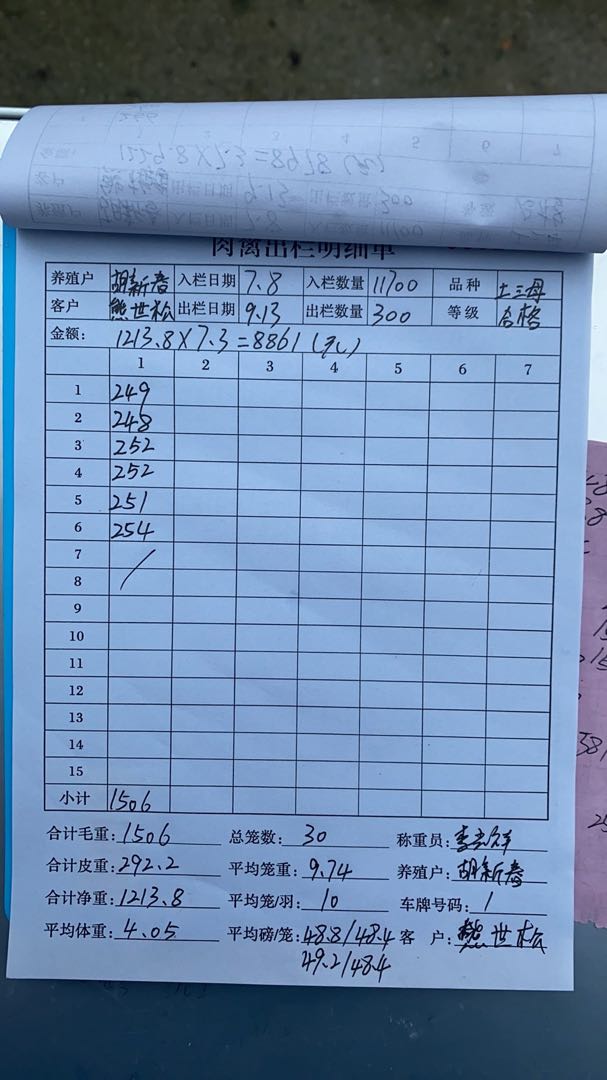 肉禽出栏明细单
养殖户 胡新春 入栏日期 7.8 入栏数量 11700 品种 土三母
客户 熊世松 出栏日期 9.13 出栏数量 300 等级 合格
金额: 1213.8×7.3=8861(元)
1 2 3 4 5 6 7
1 249
2 248
3 252
4 252
5 251
6 254
7
8
9
10
11
12
13
14
15
小计 1506
合计毛重: 1506 总笼数: 30 称重员:
合计皮重: 292.2 平均笼重: 9.74 养殖户: 胡新春
合计净重: 1213.8 平均笼/羽: 10 车牌号码: 1
平均体重: 4.05 平均磅/笼: 48.8/48.4 客 户: 熊世松
49.2/48.4